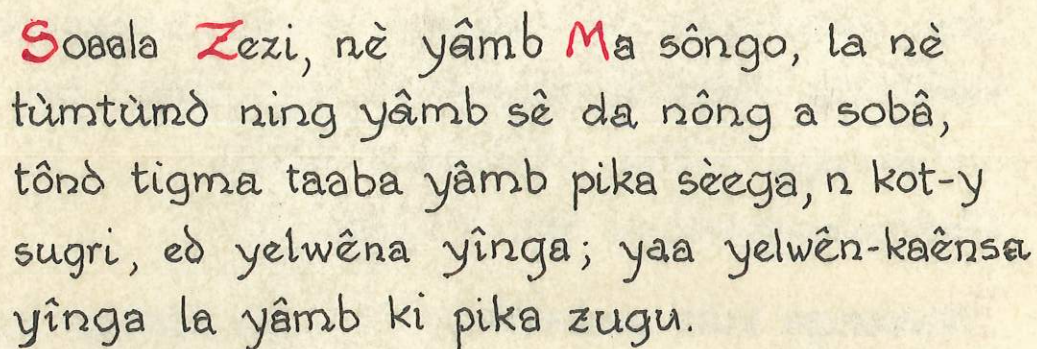 Soaala Zezi, nè yâmb Ma sôngo, la nè
tùmtùmd̀ ning yâmb sê da nông a sobâ,
tônd̀ tigma taaba yâmb pika sèega, n kot-y
sugri, ed̀ yelwêna yînga; yaa yelwên-kaênsa
yînga la yâmb ki pika zugu.